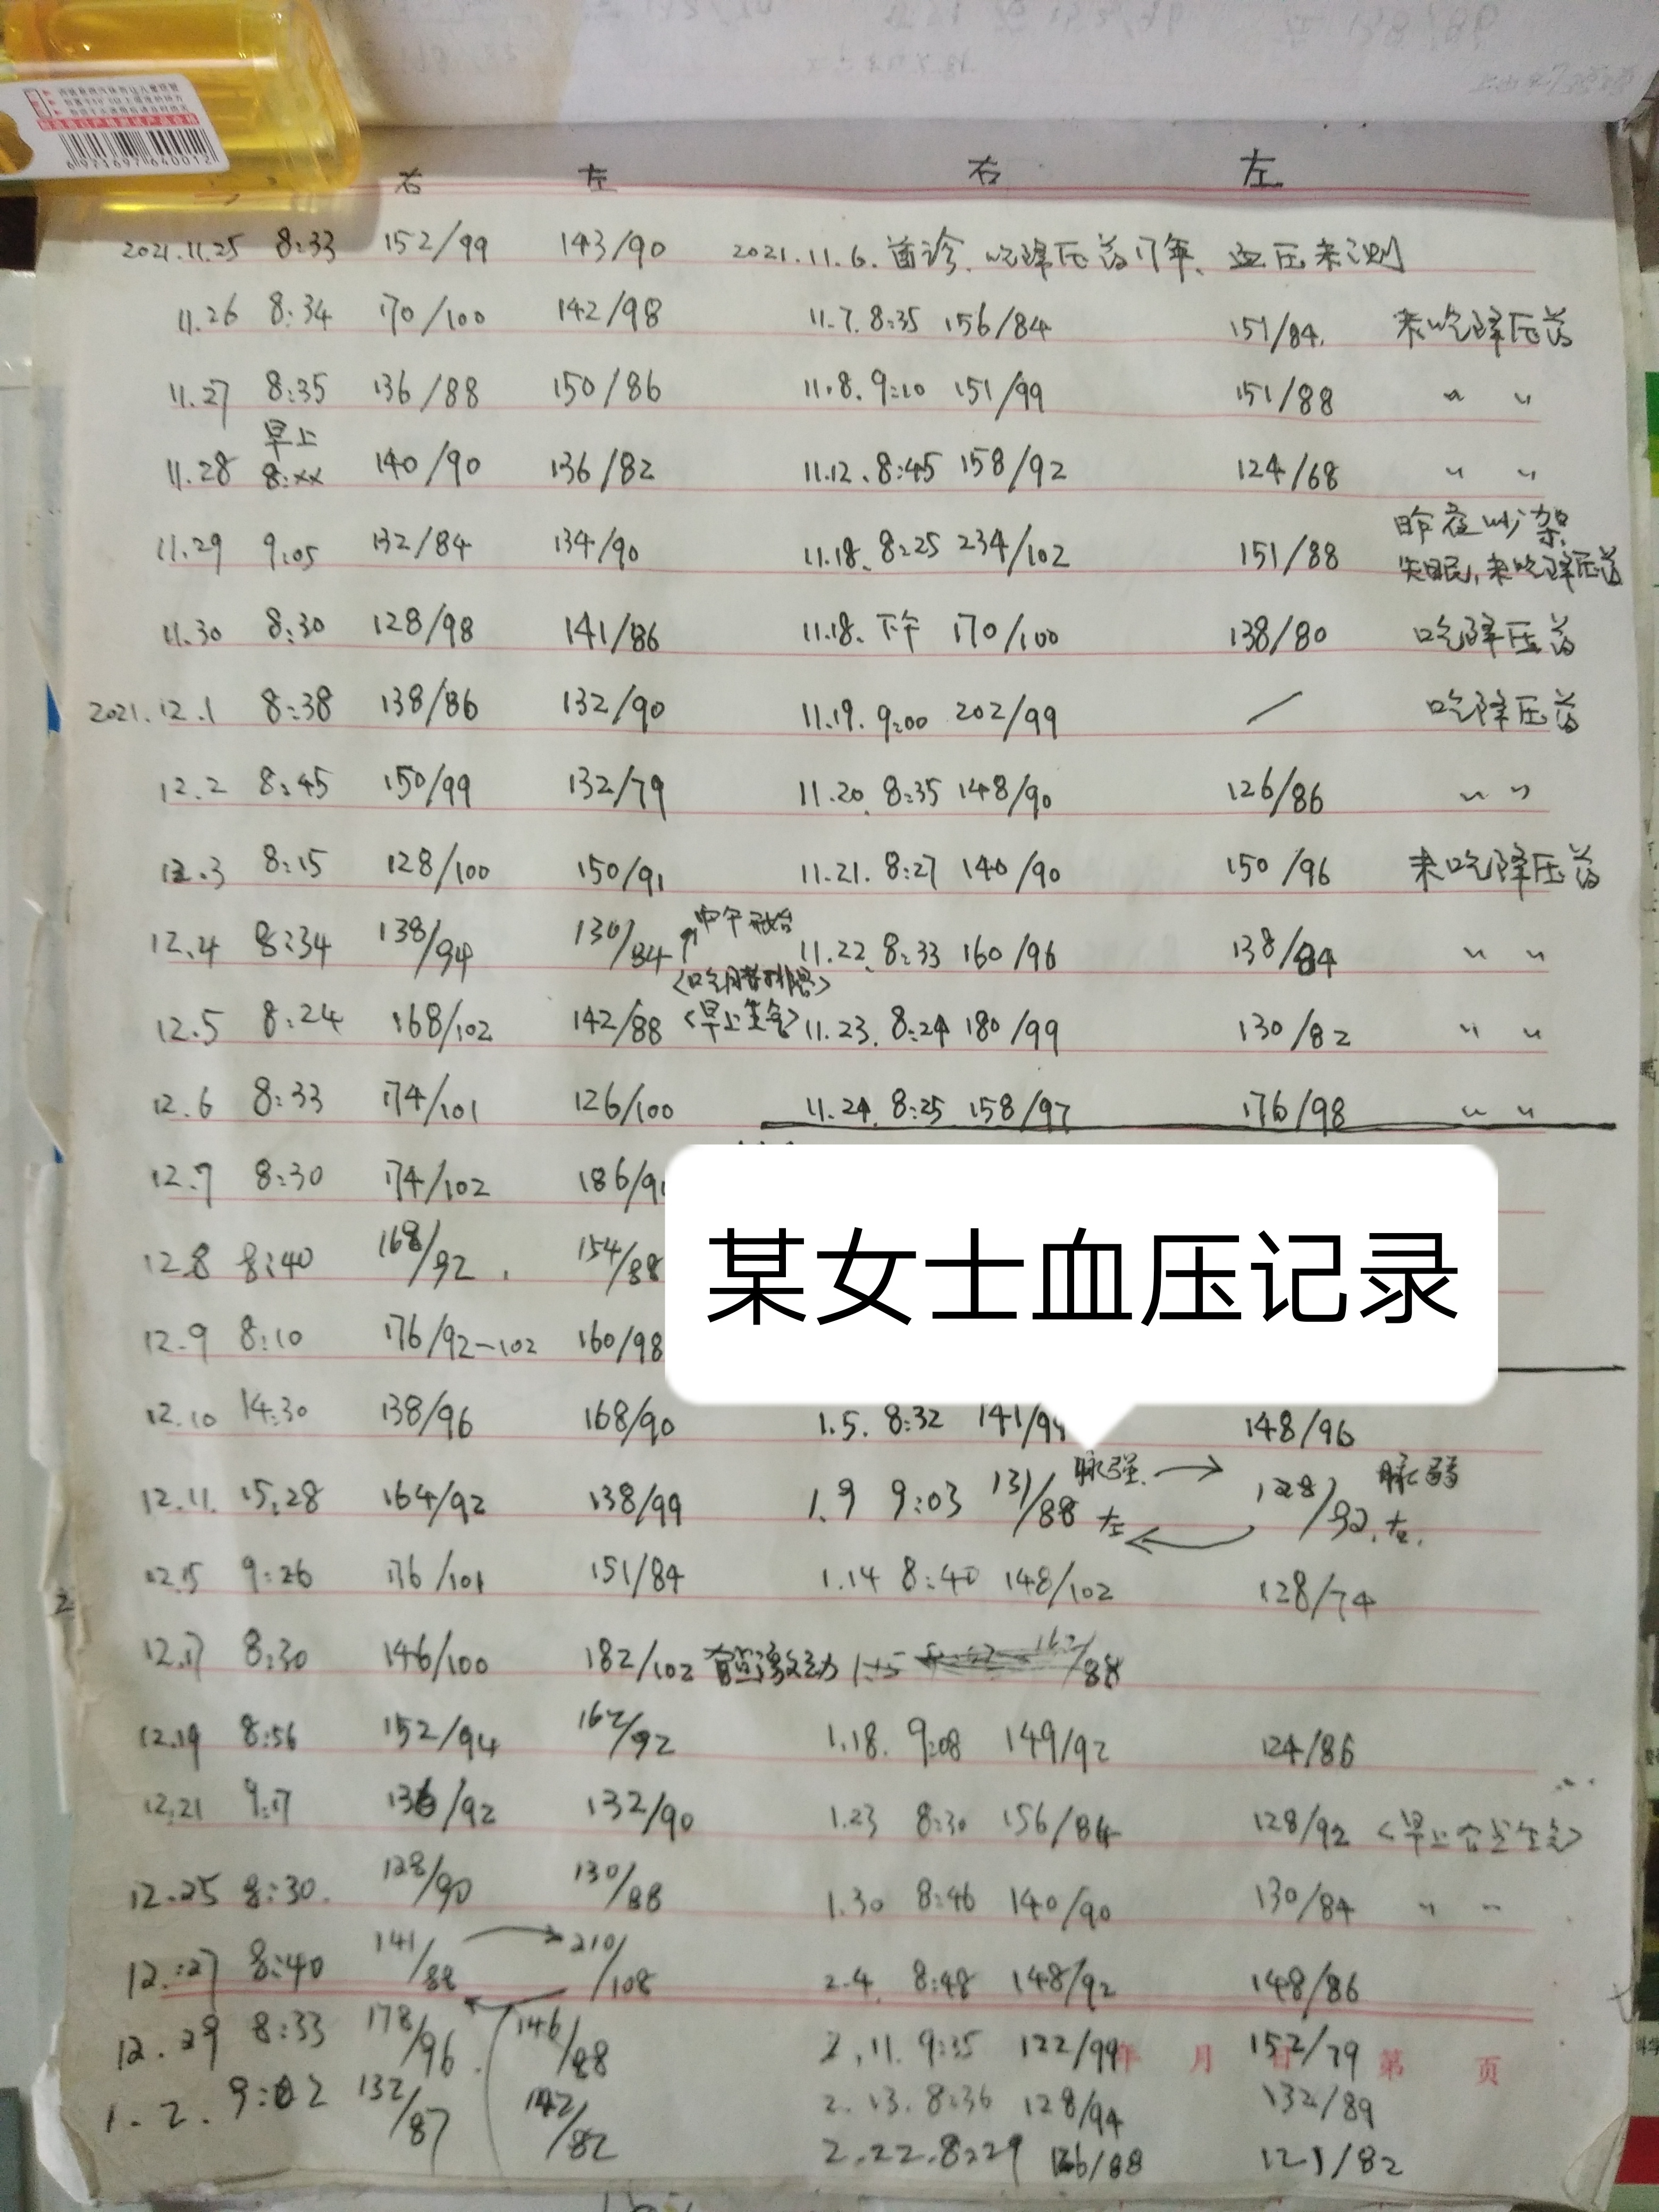 6971697640012
右 左 右 左
2021.11.25 8:33 152/99 143/90 2021.11.6.首诊.吃降压药17年、血压未测
11.26 8:34 170/100 142/98 11.7.8:35 156/84 151/84. 未吃降压药
11.27 8:35 136/88 150/86 11.8.9:10 151/99 151/88 〃 〃
早上
11.28 8:xx 140/90 136/82 11.12.8:45 158/92 124/68 〃 〃
昨夜吵架
11.29 9:05 132/84 134/90 11.18.8:25 234/102 151/88 失眠,未吃降压药
11.30 8:30 128/98 141/86 11.18.下午 170/100 138/80 吃降压药
2021.12.1 8:38 138/86 132/90 11.19.9:00 202/99 / 吃降压药
12.2 8:45 150/99 132/79 11.20.8:35 148/90 126/86 〃 〃
12.3 8:15 128/100 150/91 11.21.8:27 140/90 150/96 未吃降压药
↑中午开始
12.4 8:34 138/94 130/84 11.22.8:33 160/96 138/84 〃 〃
12.5 8:24 168/102 142/88 <早上生气> 11.23.8:24 180/99 130/82 〃 〃
12.6 8:33 174/101 126/100 11.24.8:25 158/97 176/98 〃 〃
12.7 8:30 174/102 186/9
12.8 8:40 168/92. 154/88
某女士血压记录
12.9 8:10 176/92-102 160/98
12.10 14:30 138/96 168/90 1.5.8:32 141/9 148/96
脉强.→ 脉弱
12.11.15:28 164/92 138/99 1.9 9:03 131/88 左 ← 128/92.右.
12.15 9:26 176/101 151/84 1.14 8:40 148/102 128/74
12.17 8:30 146/100 182/102 有点激动 1.15 162/88
12.19 8:56 152/94 162/92 1.18.9:08 149/92 124/86
12.21 9:17 136/92 132/90 1.23 8:30 156/84 128/92 <早上有点生气>
12.25 8:30. 128/90 130/88 1.30 8:46 140/90 130/84 〃 〃
12.27 8:40 141/88 → 210/108 2.4.8:48 148/92 148/86
12.29 8:33 178/96. 146/88 2.11.9:35 122/99 152/79
年 月 日 第 页
1.2.9:02 132/87 142/82 2.13.8:36 128/94 132/89
2.22.8:29 126/88 121/82